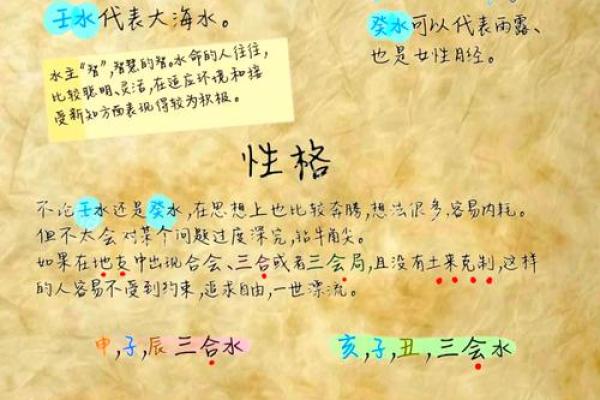 壬水代表大海水。
癸水可以代表雨露、
也是女性月经。
水主“智”,智慧的智。水命的人往往,
比较聪明、灵活,在适应环境和接
受新知方面表现得较为积极。
性格
不论壬水还是癸水,在思想上也比较奔腾,想法很多,容易内耗。
但不太会对某个问题过度深究,钻牛角尖。
如果在地支中出现合会、三合或者三会局,且没有土来克制,这样
的人容易不受到约束,追求自由,一世漂流。
申,子,辰三合水
亥,子,丑,三会水